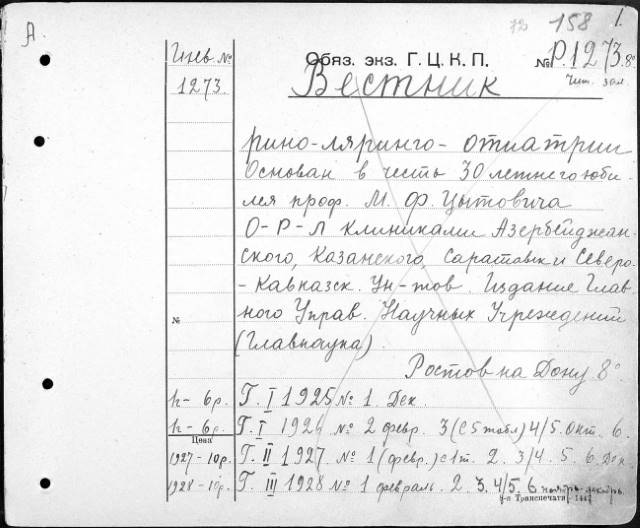 А.
12 158 1.
Инв. №
1273.
Обяз. экз. Г. Ц. К. П. № Р.1273. 8º
Чит. зал.
Вестник
рино-ляринго-отиатрии
Основан в честь 30 летнего юби-
лея проф. М. Ф. Цытовича
О-Р-Л клиниками Азербейджан-
ского, Казанского, Саратовск и Северо-
-Кавказск. Ун-тов. Издание Глав-
ного Управ. Научных Учреждений
№
(Главнаука)
Ростов на Дону 8º
6р. Г. I 1925 № 1 Дек.
6р. Г. I 1926 № 2 февр. 3 (с 5 табл) 4/5. Окт. 6.
Цена
1927 - 10р. Г. II 1927 № 1 (февр.) 2. 3/4. 5. 6 Дек.
1928 - 10р. Г. III 1928 № 1 февраль. 2. 3. 4/5. 6 ноябрь-декабрь.
Транспечати